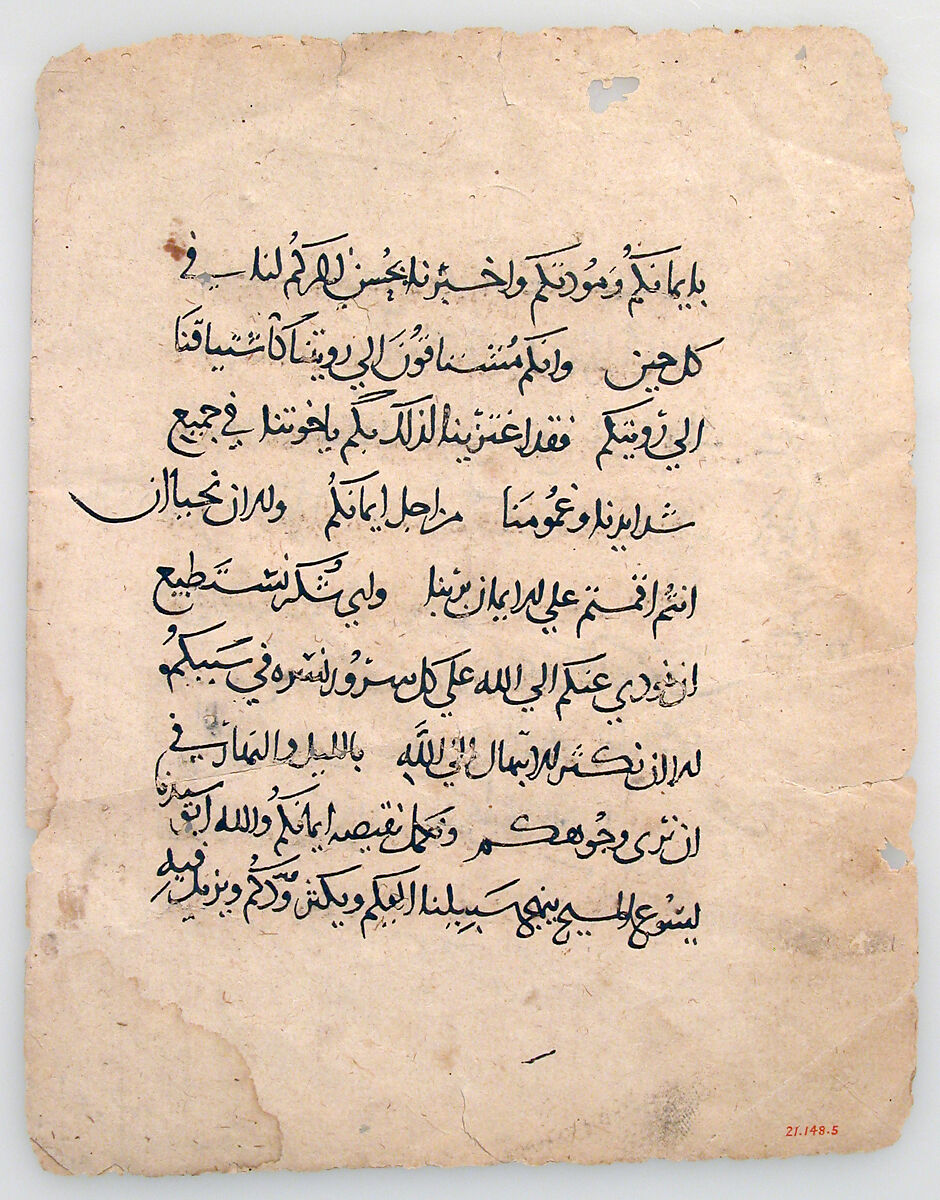 بايمانكم وَمَودتكم واخبرنا بحُسن ذكركُم لنا في
كل حين وانكم مُشتاقُونَ الي رويتنا كاشتياقنَا
الي رُويتكم فقد اعتزينا لذلك بكم ياخوتنا في جميع
شدايدنا وغمُومنَا من اجل ايمانكُم والان نحيا ان
انتُم اقمتم علي الايمان بربنا واي شُكر نستَطيع
ان نودي عَنكم الي الله علي كل سرُور نسره في سَببكمُ
الا ان نكثر الابتهال الي اللَّه بالليل والنهار في
ان نرى وجُوهكم ونكمل نقيصه ايمانكُم والله ابونا
سيدنا
يسُوع المسيح ينهج سَبيلنا اليكم ويكثر وُدّكُم ويزيدكم فيهِ
21.148.5